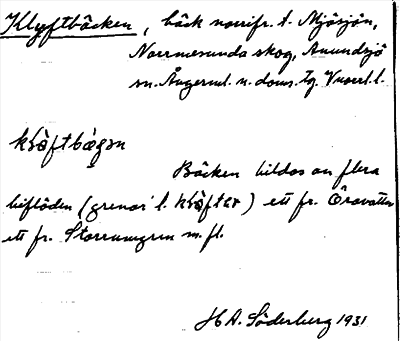 Klyftbäcken, bäck norrifr. t. Mjösjön,
Norrmesunda skog, Anundsjö
sn. Ångerml. n. doms. tg. Vnorrl. l.
Bäcken bildas av flera
biflöden (grenar l. klöfter) ett fr. Öravattn
ett fr. Storrumyren m. fl.
H A. Söderberg 1931